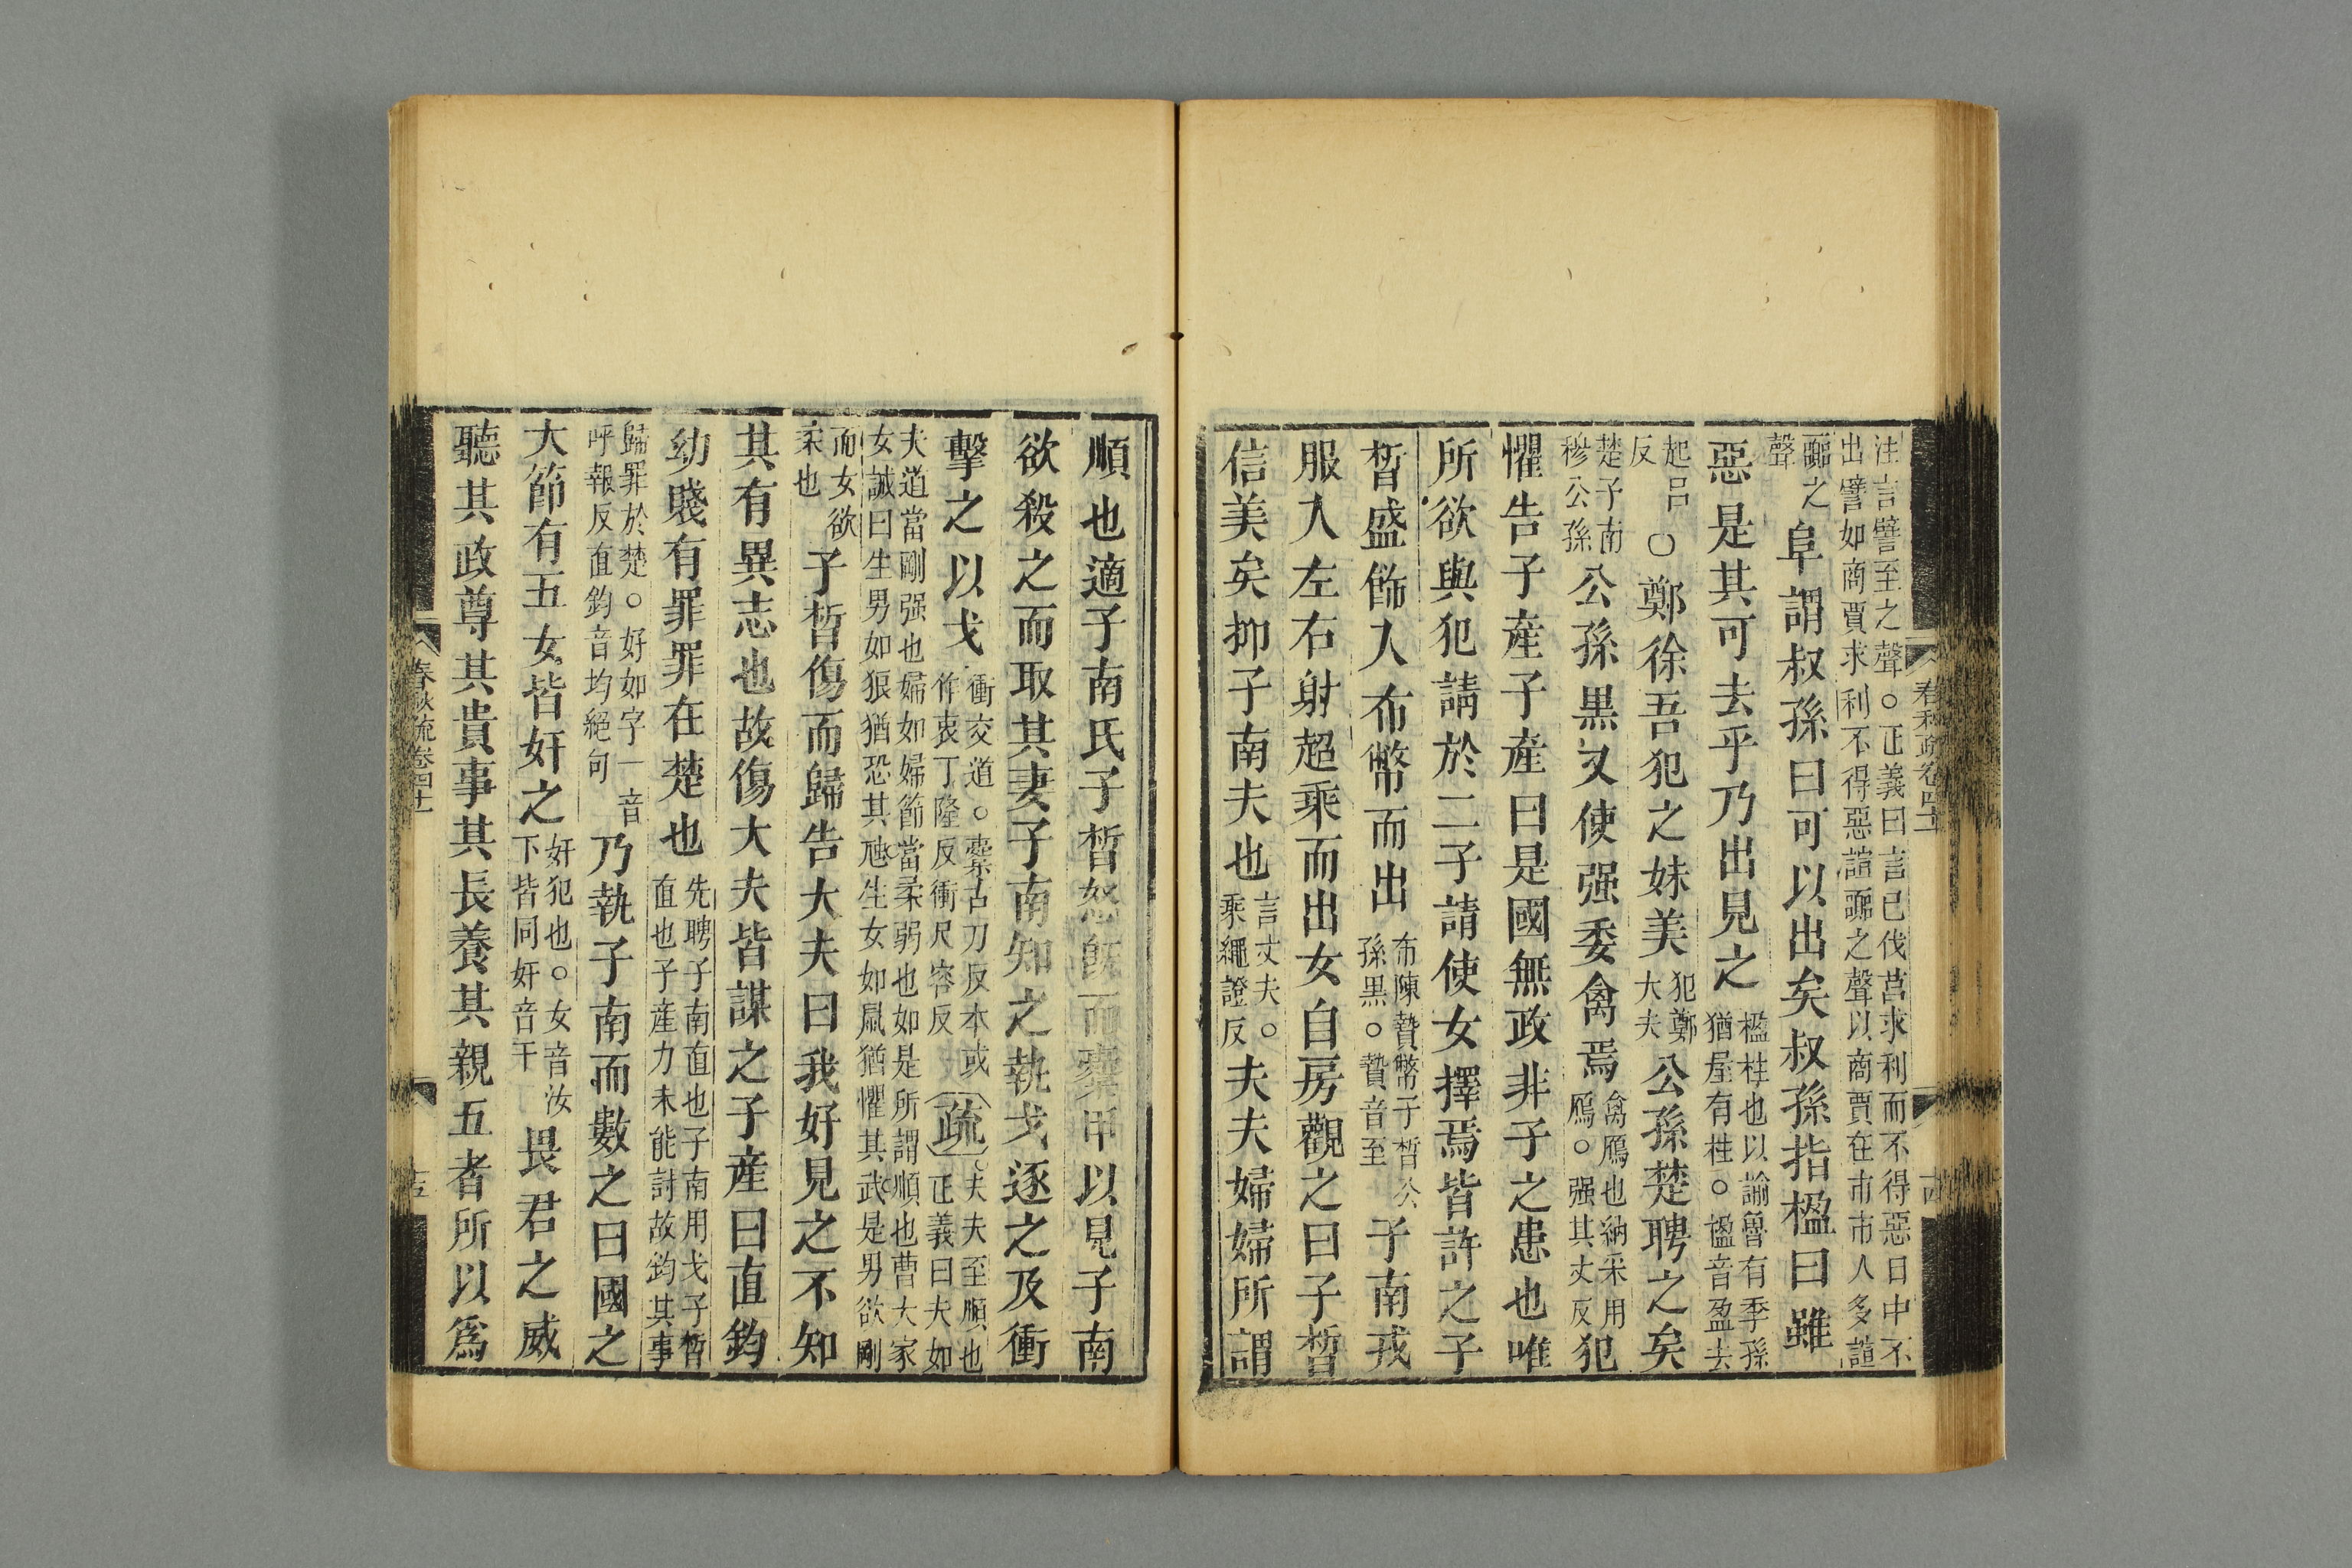 注言譬至之聲○正義曰言已伐莒求利而不得惡日中不
出譬如商賈求利不得惡諠嚻之聲以商賈在市市人多諠
嚻之
聲
阜謂叔孫曰可以出矣叔孫指楹曰雖
惡是其可去乎乃出見之
楹柱也以諭魯有季孫
猶屋有柱○楹音盈去
起呂
反
○鄭徐吾犯之妹美
犯鄭
大夫
公孫楚聘之矣
楚子南
穆公孫
公孫黑又使强委禽焉
禽鴈也納采用
鴈○强其丈反
犯
懼告子產子產曰是國無政非子之患也唯
所欲與犯請於二子請使女擇焉皆許之子
晳盛飾入布幣而出
布陳贄幣子晳公
孫黑○贄音至
子南戎
服入左右射超乘而出女自房觀之曰子晳
信美矣抑子南夫也
言丈夫○
乘繩證反
夫夫婦婦所謂
順也適子南氏子晳怒既而櫜甲以見子南
欲殺之而取其妻子南知之執戈逐之及衝
擊之以戈
衝交道○櫜古刀反本或
作衷丁隆反衝尺容反
疏
夫夫至順也
正義曰夫如
夫道當剛强也婦如婦節當柔弱也如是所謂順也曹大家
女誡曰生男如狼猶恐其尫生女如鼠猶懼其武是男欲剛
而女欲
柔也
子晳傷而歸告大夫曰我好見之不知
其有異志也故傷大夫皆謀之子產曰直鈞
幼賤有罪罪在楚也
先聘子南直也子南用戈子晳
直也子產力未能討故鈞其事
歸罪於楚○好如字一音
呼報反直鈞音均絕句
乃執子南而數之曰國之
大節有五女皆奸之
奸犯也○女音汝
下皆同奸音干
畏君之威
聽其政尊其貴事其長養其親五者所以爲
春秋疏卷四十一